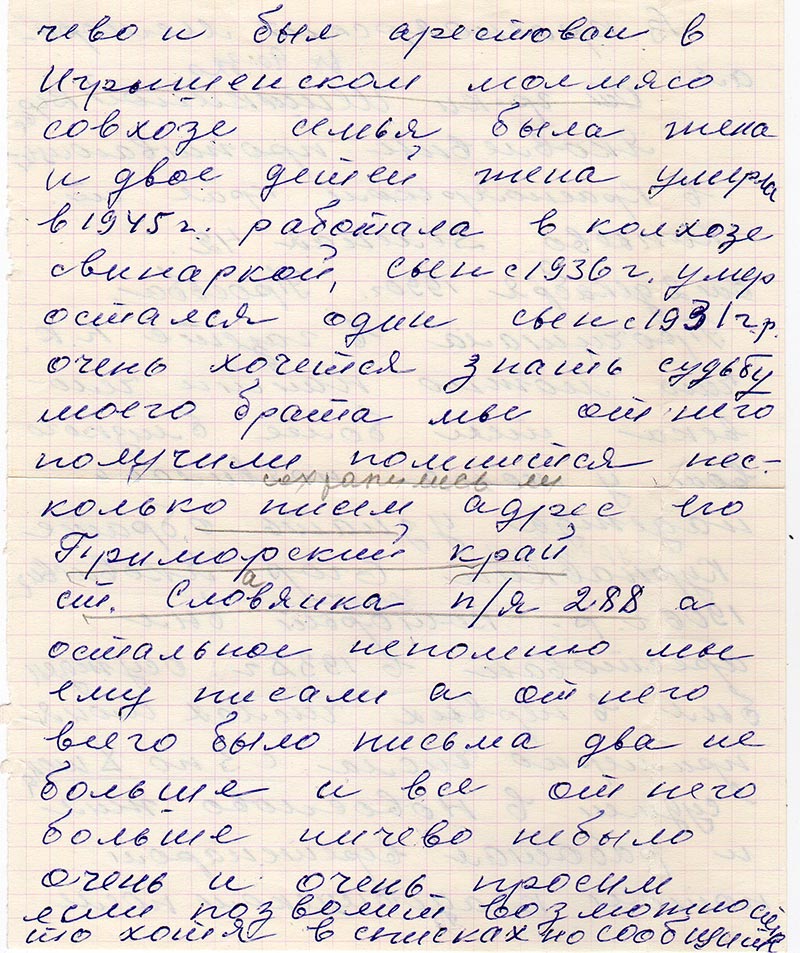 чево и был арестован в
Игрышенском молмясо
совхозе семья была жена
и двое детей жена умерла
в 1945 г. работала в колхозе
свинаркой, сын с 1936 г. умер
остался один сын с 1931 г.р.
очень хочется знать судьбу
моего брата мы от него
получили помнится нес-
сохранились ли
колько писем адрес его
Приморский край
а
ст. Словянка п/я 288 а
остальное непомню мы
ему писали а от него
всего было письма два не
больше и все от него
больше ничево небыло
очень и очень просим
если позволит возможность
то хотя в списках но сообщите